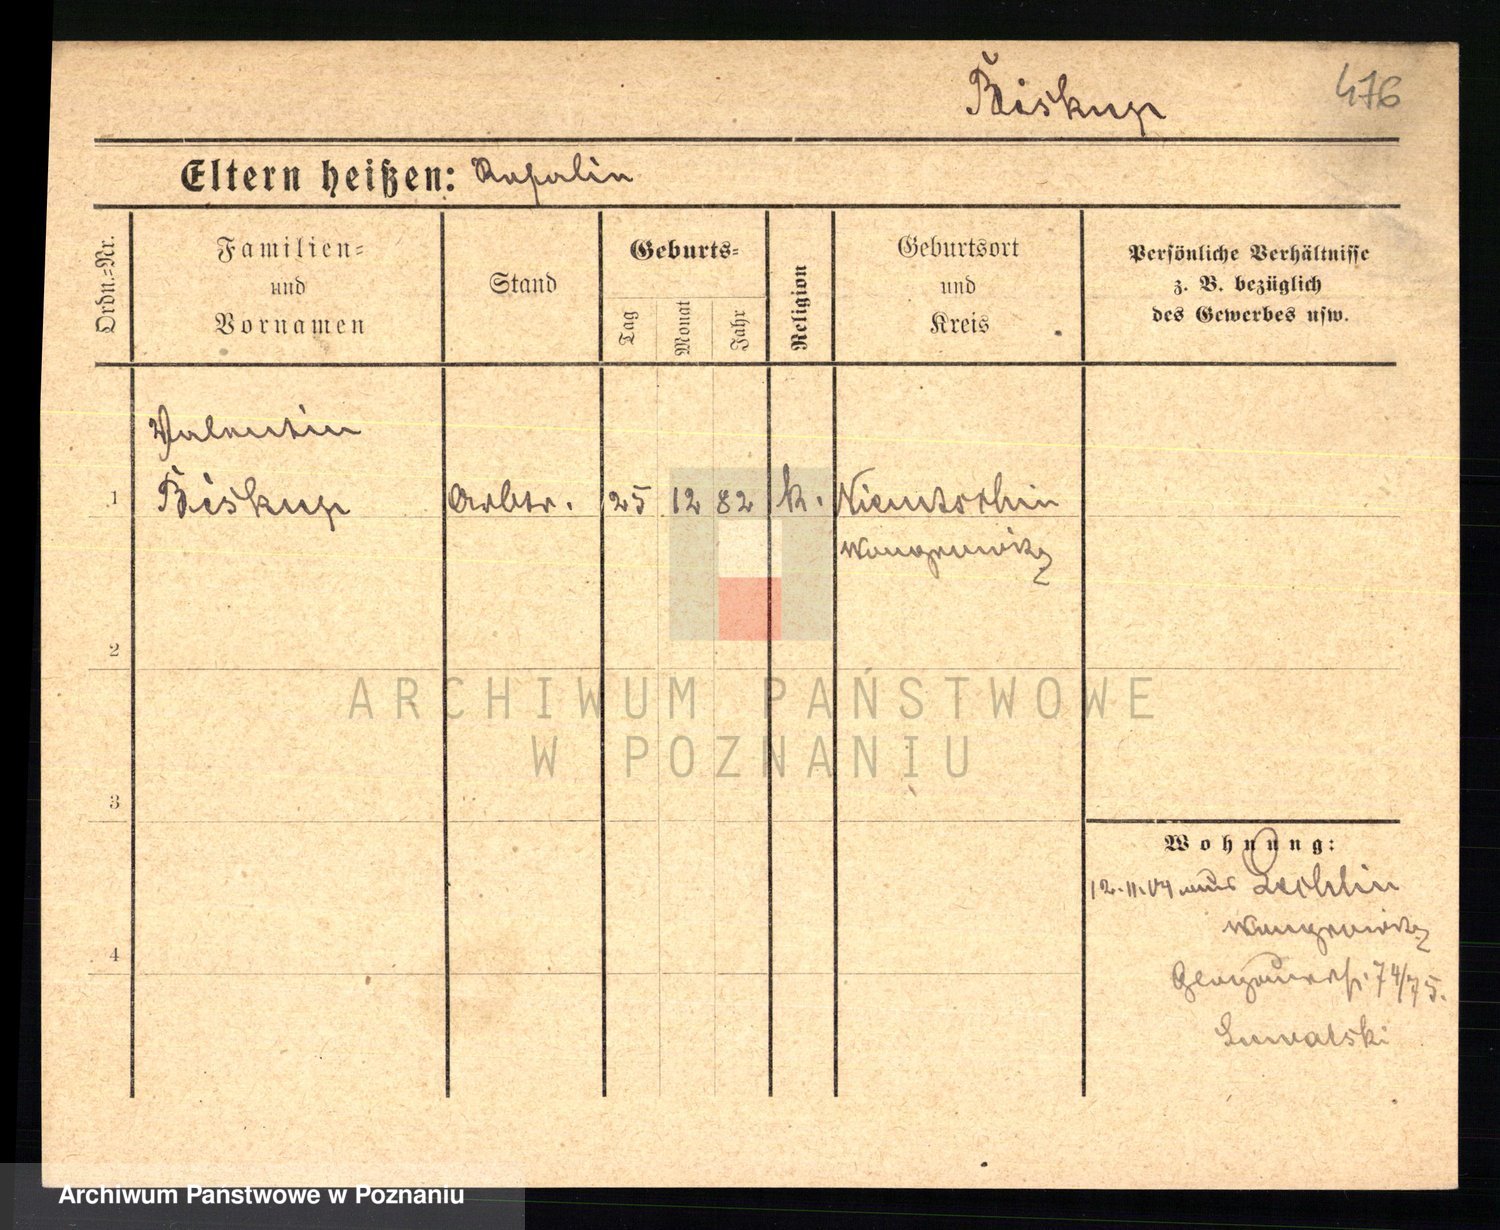 Biskup
476
Eltern heißen: Rosalin
Ordn.=Nr.
Familien=
und
Vornamen
Stand
Geburts=
Tag
Monat
Jahr
Religion
Geburtsort
und
Kreis
Persönliche Verhältnisse
z. B. bezüglich
des Gewerbes usw.
Valentin
1 Biskup Arbtr. 25 12 82 k. Nientschin
Wongrowitz
2
3
4
Wohnung:
12.11.04 aus Lechlin
Wongrowitz
Glogauerstr. 74/75.
ARCHIWUM PAŃSTWOWE
W POZNANIU
Archiwum Państwowe w Poznaniu